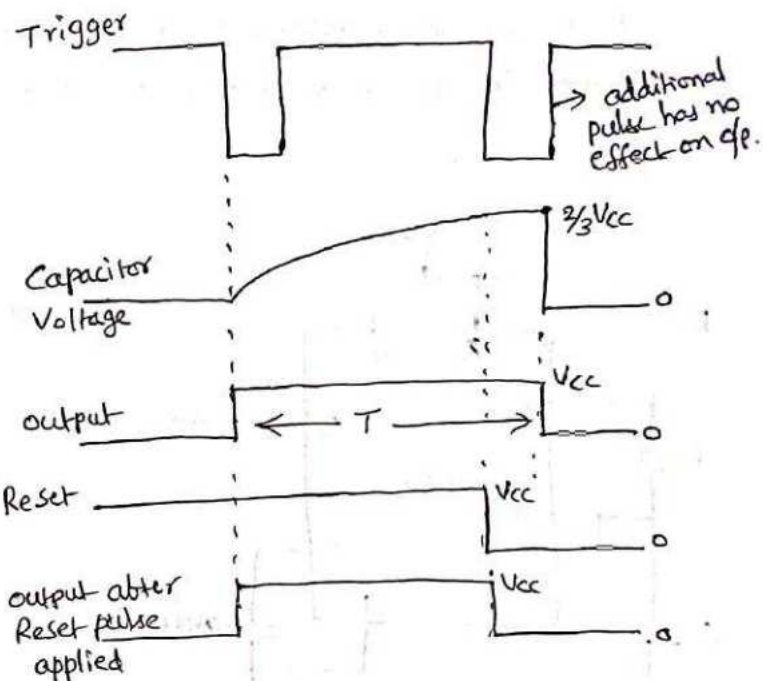 Trigger
additional
pulse has no
effect on o/p.
2/3 Vcc
Capacitor
Voltage
0
Vcc
output
T
0
Reset
Vcc
0
output abter
Reset pulse
applied
Vcc
0